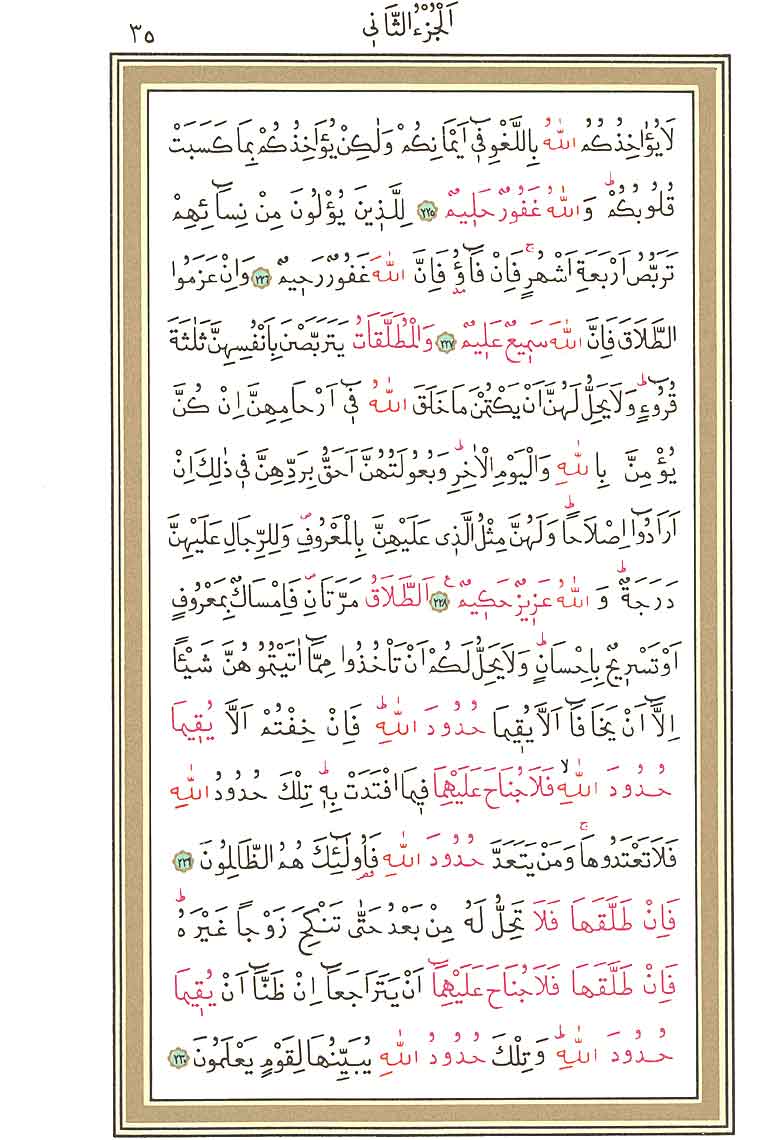 اَلْجُزْءُ الثَّانٖي
٣٥
لَا يُؤَاخِذُكُمُ اللّٰهُ بِاللَّغْوِ فٖٓي اَيْمَانِكُمْ وَلٰكِنْ يُؤَاخِذُكُمْ بِمَا كَسَبَتْ
قُلُوبُكُمْؕ وَاللّٰهُ غَفُورٌ حَلٖيمٌ ﴿٢٢٥﴾ لِلَّذٖينَ يُؤْلُونَ مِنْ نِسَٓائِهِمْ
تَرَبُّصُ اَرْبَعَةِ اَشْهُرٍۚ فَاِنْ فَٓاؤُ۫ فَاِنَّ اللّٰهَ غَفُورٌ رَحٖيمٌ ﴿٢٢٦﴾ وَاِنْ عَزَمُوا
الطَّلَاقَ فَاِنَّ اللّٰهَ سَمٖيعٌ عَلٖيمٌ ﴿٢٢٧﴾ وَالْمُطَلَّقَاتُ يَتَرَبَّصْنَ بِاَنْفُسِهِنَّ ثَلٰثَةَ
قُرُٓوءٍؕ وَلَا يَحِلُّ لَهُنَّ اَنْ يَكْتُمْنَ مَا خَلَقَ اللّٰهُ فٖٓي اَرْحَامِهِنَّ اِنْ كُنَّ
يُؤْمِنَّ بِاللّٰهِ وَالْيَوْمِ الْاٰخِرِؕ وَبُعُولَتُهُنَّ اَحَقُّ بِرَدِّهِنَّ فٖي ذٰلِكَ اِنْ
اَرَادُٓوا اِصْلَاحاًؕ وَلَهُنَّ مِثْلُ الَّذٖي عَلَيْهِنَّ بِالْمَعْرُوفِࣕ وَلِلرِّجَالِ عَلَيْهِنَّ
دَرَجَةٌؕ وَاللّٰهُ عَزٖيزٌ حَكٖيمٌࣖ ﴿٢٢٨﴾ اَلطَّلَاقُ مَرَّتَانِࣕ فَاِمْسَاكٌ بِمَعْرُوفٍ
اَوْ تَسْرٖيحٌ بِاِحْسَانٍؕ وَلَا يَحِلُّ لَكُمْ اَنْ تَأْخُذُوا مِمَّٓا اٰتَيْتُمُوهُنَّ شَيْـٔاً
اِلَّٓا اَنْ يَخَافَٓا اَلَّا يُقٖيمَا حُدُودَ اللّٰهِؕ فَاِنْ خِفْتُمْ اَلَّا يُقٖيمَا
حُدُودَ اللّٰهِۙ فَلَا جُنَاحَ عَلَيْهِمَا فٖيمَا افْتَدَتْ بِهٖؕ تِلْكَ حُدُودُ اللّٰهِ
فَلَا تَعْتَدُوهَاۚ وَمَنْ يَتَعَدَّ حُدُودَ اللّٰهِ فَاُو۬لٰٓئِكَ هُمُ الظَّالِمُونَ ﴿٢٢٩﴾
فَاِنْ طَلَّقَهَا فَلَا تَحِلُّ لَهُ مِنْ بَعْدُ حَتّٰى تَنْكِحَ زَوْجاً غَيْرَهُؕ
فَاِنْ طَلَّقَهَا فَلَا جُنَاحَ عَلَيْهِمَٓا اَنْ يَتَرَاجَعَٓا اِنْ ظَنَّٓا اَنْ يُقٖيمَا
حُدُودَ اللّٰهِؕ وَتِلْكَ حُدُودُ اللّٰهِ يُبَيِّنُهَا لِقَوْمٍ يَعْلَمُونَ ﴿٢٣٠﴾